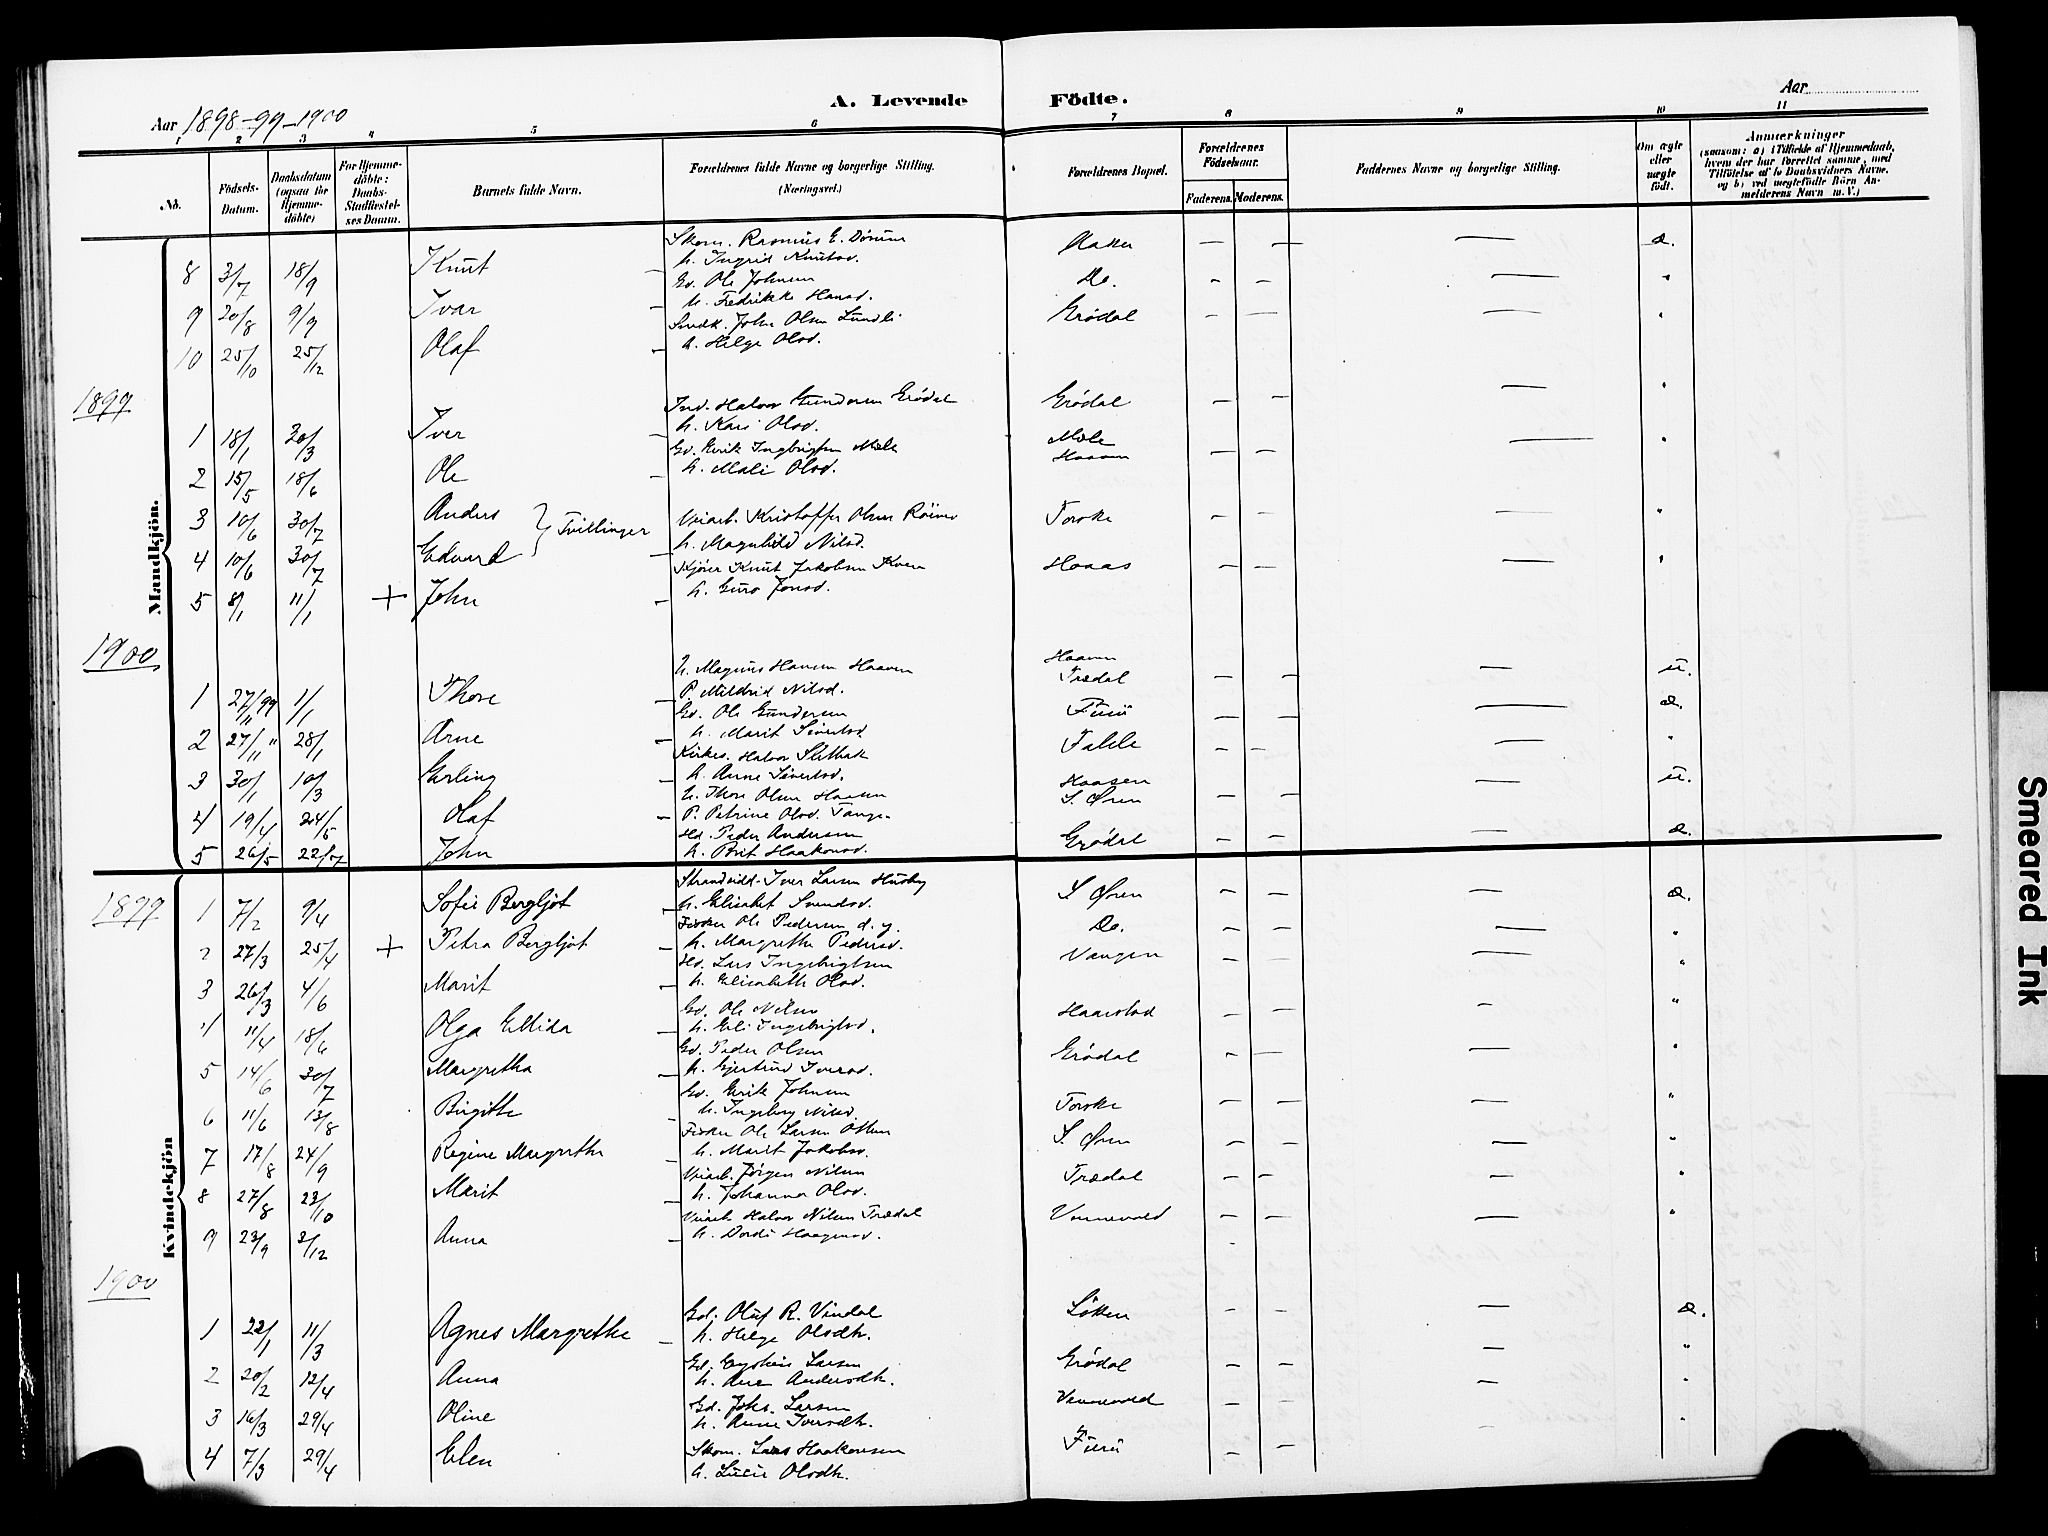 A. Levende Födte.
Aar 1898-99-1900
Aar
1 2 3 4 5 6 7 8 9 10 11
No. Födsels-Datum. Daabsdatum (ogsaa for Hjemme-döbte) For Hjemme-döbte: Daabs-Stadfæstel-ses Datum. Barnets fulde Navn. Forældrenes fulde Navne og borgerlige Stilling. (Næringsvei.) Forældrenes Bopæl. Forældrenes Födselsaar. Faderens. Moderens. Faddernes Navne og borgerlige Stilling. Om ægte eller uægte födt. Anmærkninger (saasom: a) i Tilfælde af Hjemmedaab, hvem der har forrettet samme, med Tilföielse af to Daabsvidners Navne, og b) ved uægtefödte Börn An-melderens Navn m. V.)
Mandkjön.
Skom. Rasmus E. Dörum Aaker — — — æ.
8 3/7 18/9 Knut — h. Ingrid Knutsd.
Gd. Ole Johnsen Do. — — — "
9 20/8 9/9 Ivar — h. Fredrikke Hansd.
Snedk. John Olsen Lundli Grödal — — — "
10 25/10 25/12 Olaf — h. Helge Olsd.
1899
Ind. Halvor Gundersen Grödal Grödal — — — "
1 18/1 30/3 Iver — h. Kari Olsd.
Gd. Eerik Ingbrigtsen Mæle Mæle — — — "
Haaven
2 15/5 18/6 Ole — h. Mali Olsd.
3 10/6 30/7 Anders } Tvillinger Veiarb. Kristoffer Olsen Torske — — — "
4 10/6 30/7 Edvard — h. Magnhild Nilsd.
Kjörer Knut Jakobsen Kven Hoaas — — — "
5 8/1 11/1 + John — h. Guro Jonsd.
1900
U. Magnus Hansen Haaven Haaven
Trædal — — — u.
1 27/11 99 1/1 Thore — P. Mildrid Nilsd.
Gd. Ole Gundersen Furu — — — æ.
2 27/11 " 28/1 Arne — h. Marit Sivertsd.
Kirkes. Halvor Slethak Falle — — — "
3 30/1 10/3 Erling — h. Anne Sivertsd.
U. Thore Olsen Haasen Haasen
S. Øren — — — u.
4 19/4 24/5 Olaf — P. Petrine Olsd. Tange
Hd. Peder Andersen Grödal — — — æ.
5 26/5 22/7 John h. Brit Haakonsd.
Kvindekjön
1899
Strandsidd. Iver Larsen Husby S. Øren — — — æ.
1 7/2 9/4 Sofie Bergljot — h. Elisabet Svendsd.
Fisker Ole Pedersen d. y. Do. — — — "
2 27/3 25/4 + Petra Bergljot — h. Margrethe Pedersd.
Hd. Lars Ingebrigtsen Vangen — — — "
3 26/3 4/6 Marit — h. Elisabeth Olsd.
Gd. Ole Nilsen Haarstad — — — "
4 11/4 18/6 Olga Ellida — h. Eli Ingebrigtsd.
Gd. Peder Olsen Grödal — — — "
5 14/6 30/7 Margretha — h. Gjertrud Iversd.
Gd. Eerik Johnsen Torske — — — "
6 11/6 13/8 Birgitte — h. Ingeborg Nilsd.
Fisker Ole Larsen S. Øren — — — "
7 17/8 24/9 Regine Margrethe — h. Marit Jakobsd.
Veiarb. Jørgen Nilsen Trædal — — — "
8 27/8 23/10 Marit — h. Johanna Olsd.
Veiarb. Halvor Nilsen Trædal Vennevold — — — "
9 23/9 3/12 Anna — h. Dordi Haagensd. -
1900
Gd. Oluf R. Vindal Løkken — — — æ.
1 22/1 11/3 Agnes Margrethe — h. Helge Olsdtr.
Gd. Eystein Larsen Grödal — — — "
2 20/2 12/4 Anna h. Ane Andersdtr.
Gd. Johs. Larsen Vennevold — — — "
3 16/3 29/4 Oline h. Anne Iversdtr.
Skom. Lars Haakonsen Furu — — — "
4 7/3 29/4 Elen h. Lucie Olsdtr.
Smeared Ink